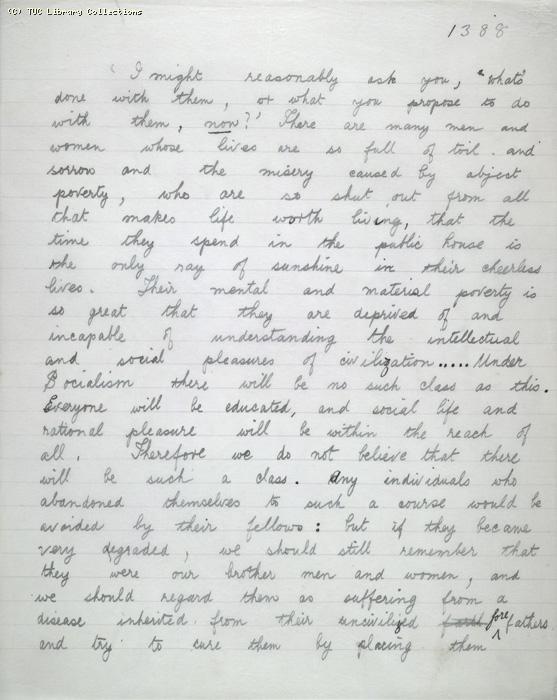 (C) TUC Library Collections
1388
'I might reasonably ask you, "what's
done with them, or what you propose to do
with them, now?' There are many men and
women whose lives are so full of toil and
sorrow and the misery caused by abject
poverty, who are so shut out from all
that makes life worth living, that the
time they spend in the public house is
the only ray of sunshine in their cheerless
lives. Their mental and material poverty is
so great that they are deprived of and
incapable of understanding the intellectual
and social pleasures of civilization..... Under
Socialism there will be no such class as this.
Everyone will be educated, and social life and
rational pleasure will be within the reach of
all. Therefore we do not believe that there
will be such a class. Any individuals who
abandoned themselves to such a course would be
avoided by their fellows: but if they became
very degraded, we should still remember that
they were our brother men and women, and
we should regard them as suffering from a
disease inherited from their uncivilized forefathers
and try to cure them by placing them